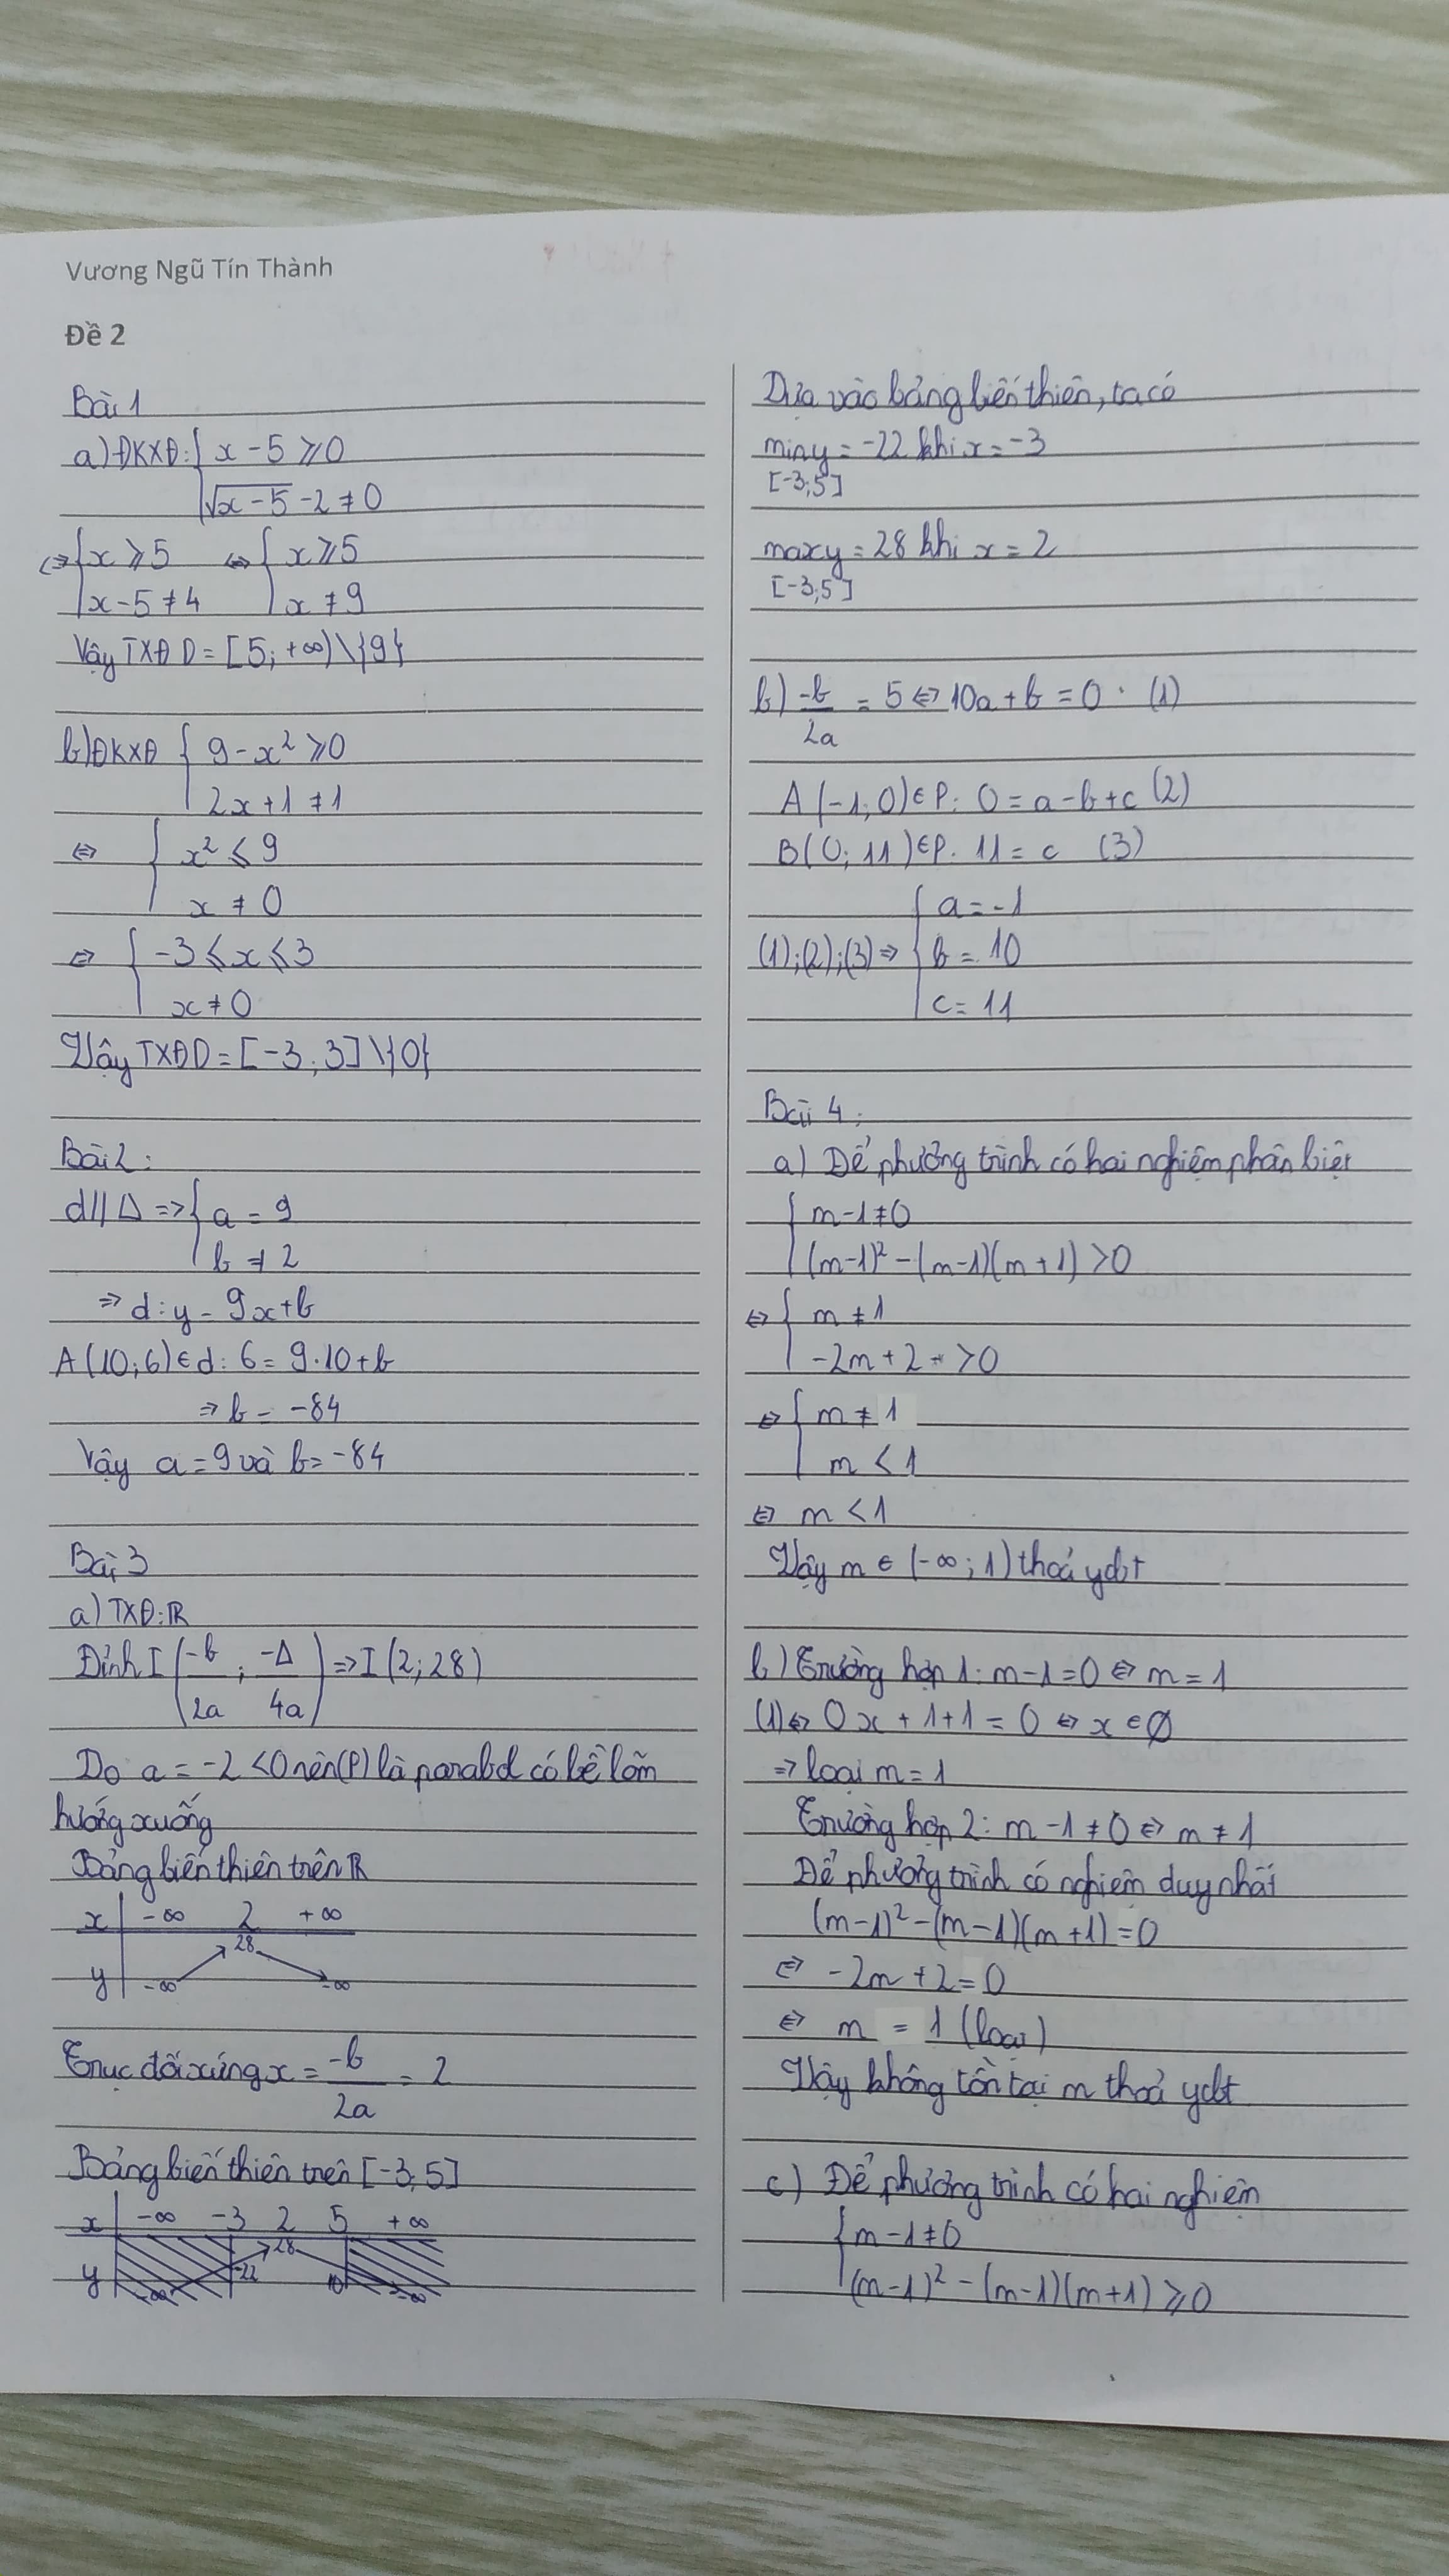 Vương Ngũ Tín Thành
Đề 2
Bài 1
a) ĐKXĐ: { x - 5 ⩾ 0
√x-5 - 2 ≠ 0
⇔ { x ⩾ 5 ⇔ { x ⩾ 5
x - 5 ≠ 4 x ≠ 9
Vậy TXĐ D = [5; +∞) \ {9}
b) ĐKXĐ { 9 - x² ⩾ 0
2x + 1 ≠ 1
⇔ { x² ⩽ 9
x ≠ 0
⇔ { -3 ⩽ x ⩽ 3
x ≠ 0
Vậy TXĐ D = [-3; 3] \ {0}
Bài 2:
d // Δ ⇒ { a = 9
b ≠ 2
⇒ d: y = 9x + b
A(10; 6) ∈ d: 6 = 9.10 + b
⇒ b = -84
Vậy a = 9 và b = -84
Bài 3
a) TXĐ: ℝ
Đỉnh I (-b/2a ; -Δ/4a) ⇒ I (2; 28)
Do a = -2 < 0 nên (P) là parabol có bề lõm
hướng xuống
Bảng biến thiên trên ℝ
x -∞ 2 +∞
28
y -∞ -∞
Trục đối xứng x = -b/2a = 2
Bảng biến thiên trên [-3; 5]
x -∞ -3 2 5 +∞
28
y -∞ -22 10 -∞
Dựa vào bảng biến thiên, ta có
min y = -22 khi x = -3
[-3; 5]
max y = 28 khi x = 2
[-3; 5]
b) -b/2a = 5 ⇔ 10a + b = 0 . (1)
A(-1; 0) ∈ P: 0 = a - b + c (2)
B(0; 11) ∈ P. 11 = c (3)
{ a = -1
(1); (2); (3) ⇒ b = 10
c = 11
Bài 4:
a) Để phương trình có hai nghiệm phân biệt
{ m - 1 ≠ 0
(m-1)² - (m-1)(m+1) > 0
⇔ { m ≠ 1
-2m + 2 > 0
⇔ { m ≠ 1
m < 1
⇔ m < 1
Vậy m ∈ (-∞; 1) thoả ycbt
b) Trường hợp 1: m - 1 = 0 ⇔ m = 1
(1) ⇔ 0x + 1 + 1 = 0 ⇔ x ∈ ∅
⇒ loại m = 1
Trường hợp 2: m - 1 ≠ 0 ⇔ m ≠ 1
Để phương trình có nghiệm duy nhất
(m-1)² - (m-1)(m+1) = 0
⇔ -2m + 2 = 0
⇔ m = 1 (loại)
Vậy không tồn tại m thoả ycbt
c) Để phương trình có hai nghiệm
{ m - 1 ≠ 0
(m-1)² - (m-1)(m+1) ⩾ 0